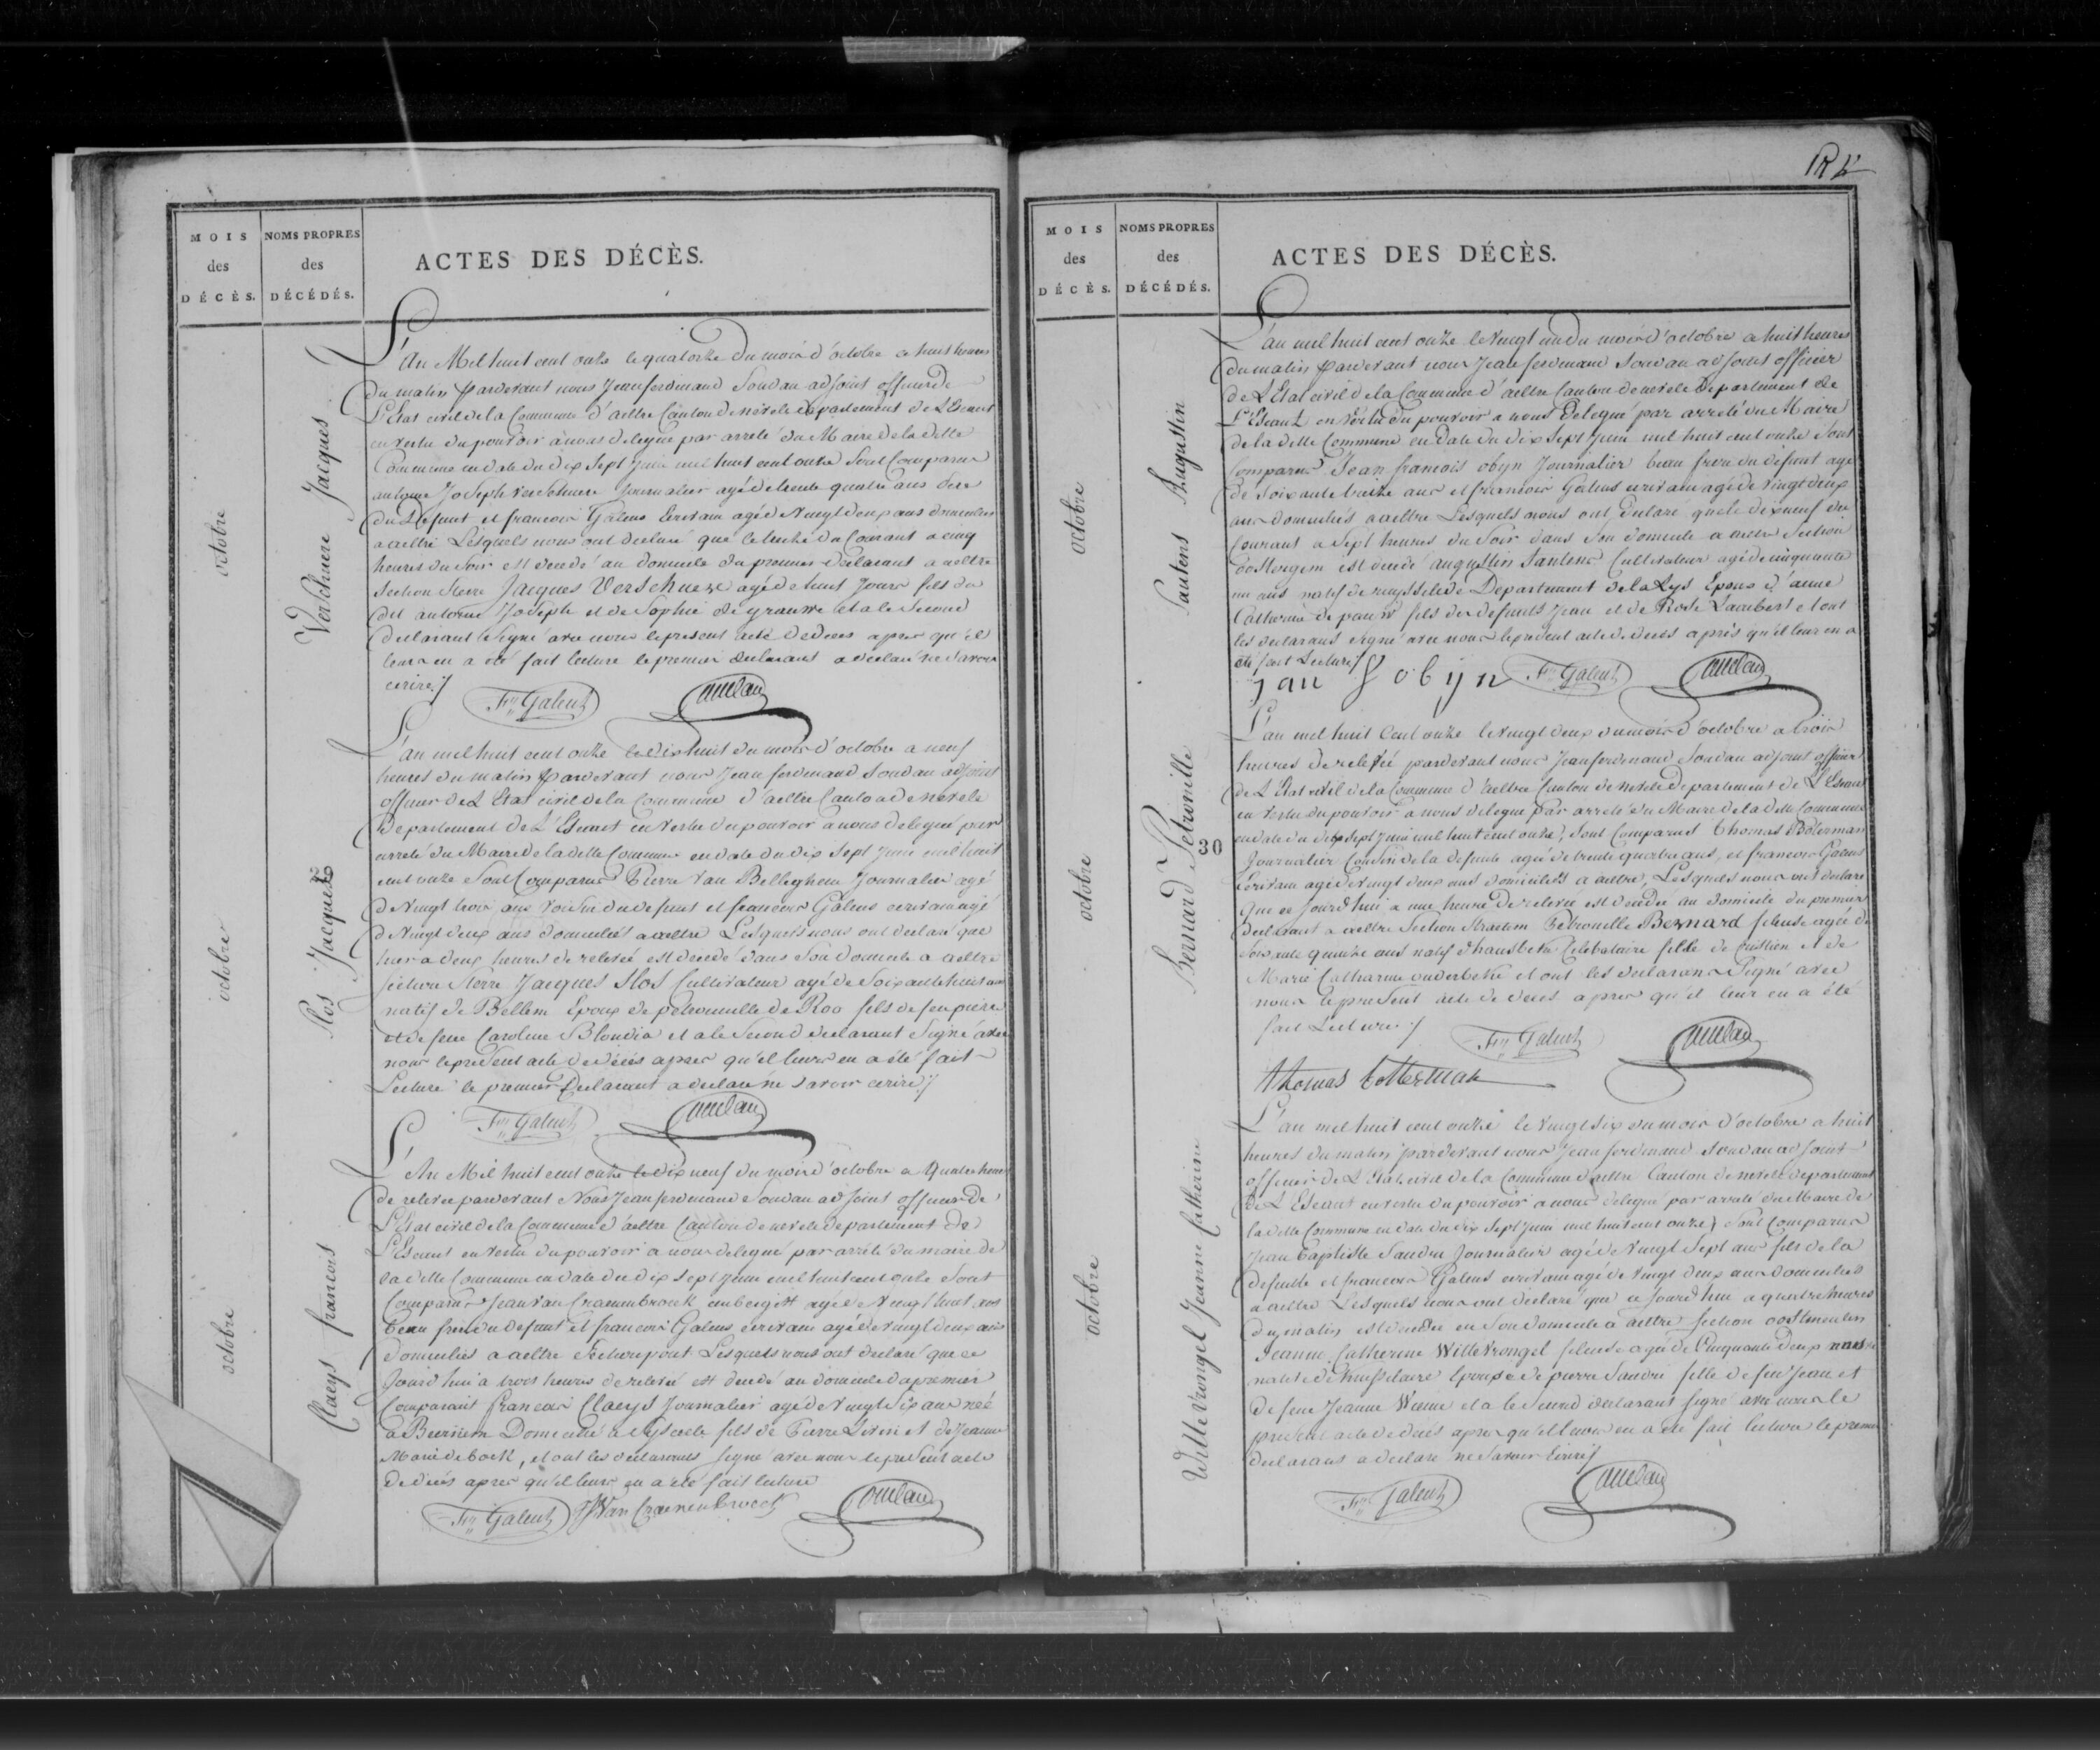 MOIS
des
DÉCÈS.
NOMS PROPRES
des
DÉCÉDÉS.
ACTES DES DÉCÈS.
octobre
Verschuere Jacques
L'An Mil huit cent onze le quatorze du mois d'octobre a huit heures
du matin pardevant nous Jean ferdinand Soudan adjoint officier de
L'Etat civil de la Commune d'aeltre Canton de nevele departement de L'Escaut
en vertu du pouvoir à nous delegué par arreté du Maire de la ditte
Commune en date du dix Sept Juin mil huit cent onze Sont Comparus
antoine Joseph verschuere Journalier agé de trente quatre ans pere
du Defunt et francois Galens Ecrivain agé de Vingt deux ans domiciliés
a aeltre Lesquels nous ont declaré que le treize du Courant a cinq
heures du Soir est decedé au domicile du premier declarant a aeltre
Section Sterre Jacques Verschuere agé de huit Jours fils du
dit antoine Joseph et de Sophie de grauwe et a le Second
declarant Signé avec nous le present acte de deces apres qu'il
leur en a été fait lecture le premier declarant a declaré ne Savoir
ecrire /
Frs Galens
octobre
Slos Jacques
L'an mil huit cent onze le dix huit du mois d'octobre a neuf
heures du matin pardevant nous Jean ferdinand Soudan adjoint
officier de L'Etat civil de la Commune d'aeltre Canton de nevele
Departement de L'Escaut en vertu du pouvoir a nous delegué par
arreté du Maire de la ditte Commune en date du dix Sept Juin mil huit
cent onze Sont Comparus Pierre Van Belleghem Journalier agé
de Vingt trois ans Voisin du defunt et francois Galens ecrivain agé
de Vingt deux ans domiciliés a aeltre Lesquels nous ont declaré que
hier a deux heures de relevée est decedé dans Son domicile a aeltre
Section Sterre Jacques Slos Cultivateur agé de Soixante huit ans
natif de Bellem Epoux de petronille de Roo fils de feu pierre
et de feue Caroline Blondia et a le Second declarant Signé avec
nous le present acte de décés apres qu'il leur en a été fait
Lecture le premier Declarant a declaré ne Savoir ecrire /
Frs Galens
octobre
Claeys francois
L'An Mil huit cent onze le dix neuf du mois d'octobre a quatre heures
de relevée pardevant Nous Jean ferdinand Soudan adjoint officier de
L'Etat civil de la Commune d'aeltre Canton de nevele departement de
L'Escaut en vertu du pouvoir a nous delegué par arrêté du maire de
la ditte Commune en date du dix Sept Juin mil huit cent onze Sont
Comparus Jean van Craenenbroeck aubergist agé de Vingt huit ans
beau frere du defunt et francois Galens ecrivain agé de vingt deux ans
domiciliés a aeltre Lesquels nous ont declaré que ce
Jourd'hui a trois heures de relevée est decedé au domicile du premier
Comparant francois Claeys Journalier agé de Vingt Six ans neé
a Beernem Domicilié a fils de Pierre Livin et de Jeanne
Marie de bock, et ont les declarants Signé avec nous le present acte
de décés apres qu'il leur en a été fait lecture
Frs Galens JVan Craenenbroeck
MOIS
des
DÉCÈS.
NOMS PROPRES
des
DÉCÉDÉS.
ACTES DES DÉCÈS.
octobre
Sautens Augustin
L'an mil huit cent onze le vingt un du mois d'octobre a huit heures
du matin pardevant nous Jean ferdinand Soudan adjoint officier
de L'Etat civil de la Commune d'aeltre Canton de nevele Departement de
L'Escaut en vertu du pouvoir a nous Delegué par arreté du Maire
de la ditte Commune en Date du dix Sept Juin mil huit cent onze Sont
Comparus Jean francois obyn Journalier beau frere du defunt agé
de Soixante treize ans et francois Galens ecrivain agé de vingt deux
ans domiciliés a aeltre Lesquels nous ont declaré que le dixneuf du
Courant a Sept heures du Soir dans Son domicile a aeltre Section
oostergem est decedé augustin Sautens Cultivateur agé de cinquante
un ans natif de ruysselede Departement de la Lys Epoux d'anne
Catherine de pauw fils des defunts Jean et de Rose Lambert et ont
les declarants Signé avec nous le present acte de decés après qu'il leur en a
été fait Lecture /
jan f obyn Frs Galens
octobre
Bernard Petronille
30
L'an mil huit Cent onze le vingt deux du mois d'octobre a trois
heures de relevée pardevant nous Jean ferdinand Soudan adjoint officier
de L'Etat civil de la Commune d'aeltre Canton de nevele departement de L'Escaut
en vertu du pouvoir a nous delegué par arreté du Maire de la ditte Commune
en date du dix Sept Juin mil huit cent onze, Sont Comparus Thomas Botterman
Journalier Cousin de la defunte agé de trente quatre ans, et francois Galens
Ecrivain agé de vingt deux ans domiciliés a aeltre, Lesquels nous ont declaré
que ce Jourd'hui a une heure de relevée est decedée au domicile du premier
declarant a aeltre Section Straetem Petronille Bernard fileuse agée de
Soixante quinze ans natif d'hansbeke Celibataire fille de Cristien et de
Marie Catharine vanderbeke et ont les declarans Signé avec
nous le present acte de deces apres qu'il leur en a été
fait Lecture /
Frs Galens
thomas botterman
octobre
Willevrongel Jeanne Catherine
L'an mil huit cent onze le vingt six du mois d'octobre a huit
heures du matin pardevant nous Jean ferdinand Soudan adjoint
officier de L'Etat civil de la Commune d'aeltre Canton de nevele departement
de L'Escaut en vertu du pouvoir a nous delegué par arreté du Maire de
la ditte Commune en date du dix Sept Juin mil huit cent onze, Sont Comparus
Jean baptiste Sandra Journalier agé de Vingt Sept ans fils de la
defunte et francois Galens ecrivain agé de vingt deux ans domiciliés
a aeltre Lesquels nous ont declaré que ce Jourd'hui a quatre heures
du matin est decedée en Son domicile a aeltre Section oostmeulen
Jeanne Catherine Willevrongel fileuse agée de Cinquante Deux
native de Epouse de pierre Sandra fille de feu Jean et
de feue Jeanne Wieme et a le Second declarant Signé avec nous le
present acte de décès apres qu'il leur en a été fait lecture le premier
declarant a declaré ne Savoir Ecrire /
Frs Galens